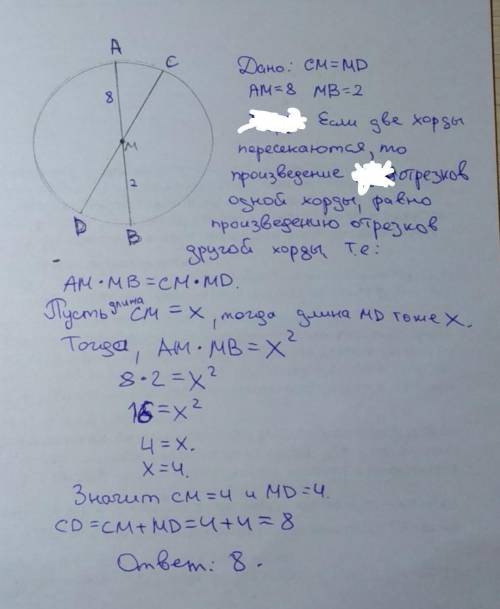 A
C
8
M
2
D
B
Дано: CM=MD
AM=8 MB=2
Если две хорды
пересекаются, то
произведение отрезков
одной хорды, равно
произведению отрезков
другой хорды, т.е:
AM·MB=CM·MD.
Пусть длина CM=X, тогда длина MD тоже X.
Тогда, AM·MB=X²
8·2=X²
16=X²
4=X.
X=4.
Значит CM=4 и MD=4.
CD=CM+MD=4+4=8
Ответ: 8.